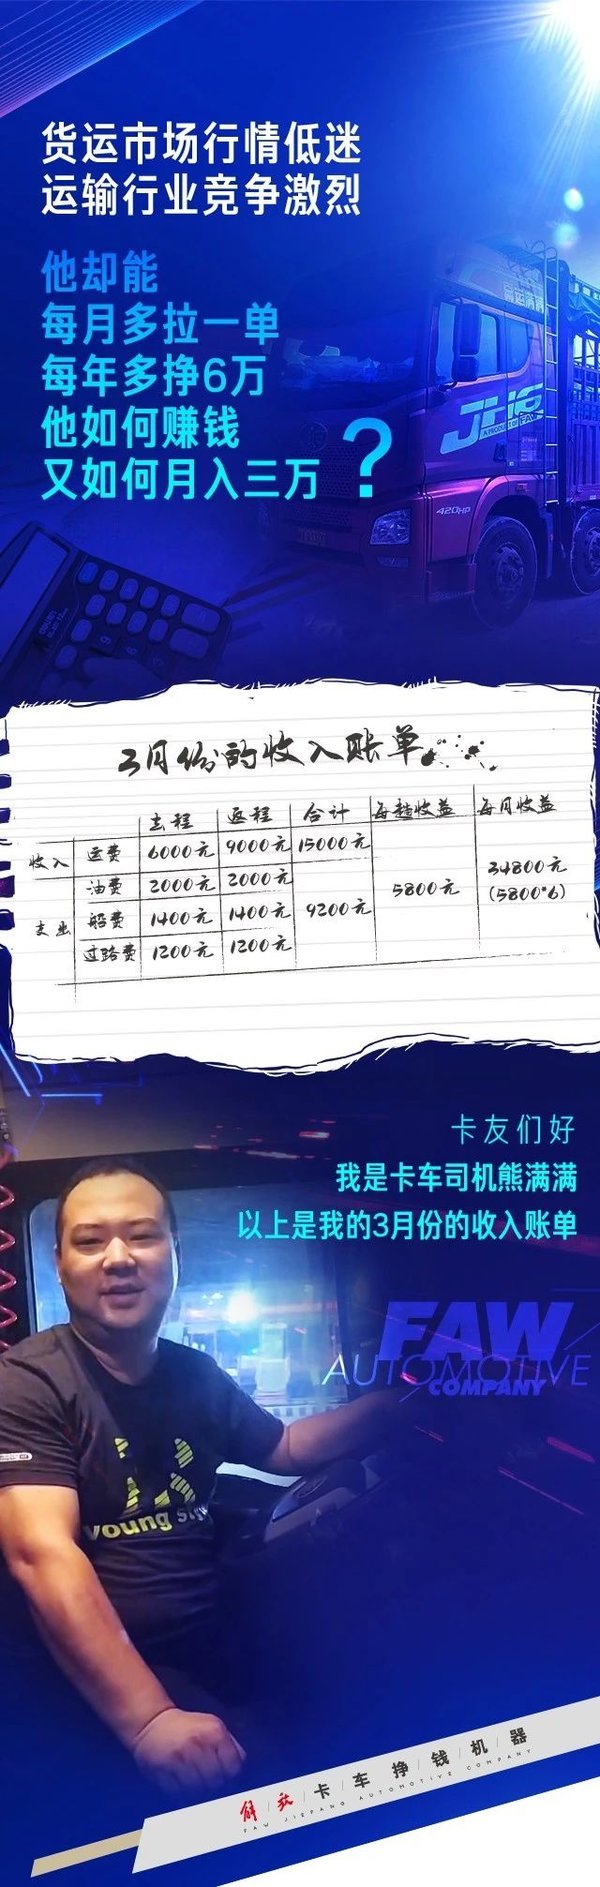 货运市场行情低迷
运输行业竞争激烈
他却能
每月多拉一单
每年多挣6万
他如何赚钱
又如何月入三万？
JH6
420HP
3月份的收入账单
去程 返程 合计 每趟收益 每月收益
收入 运费 6000元 9000元 15000元
支出 油费 2000元 2000元
船费 1400元 1400元 9200元
过路费 1200元 1200元
5800元
34800元
(5800*6)
卡友们好
我是卡车司机熊满满
以上是我的3月份的收入账单
FAW
AUTOMOTIVE
COMPANY
young
解放/卡/车/挣/钱/机/器
FAW JIEFANG AUTOMOTIVE COMPANY